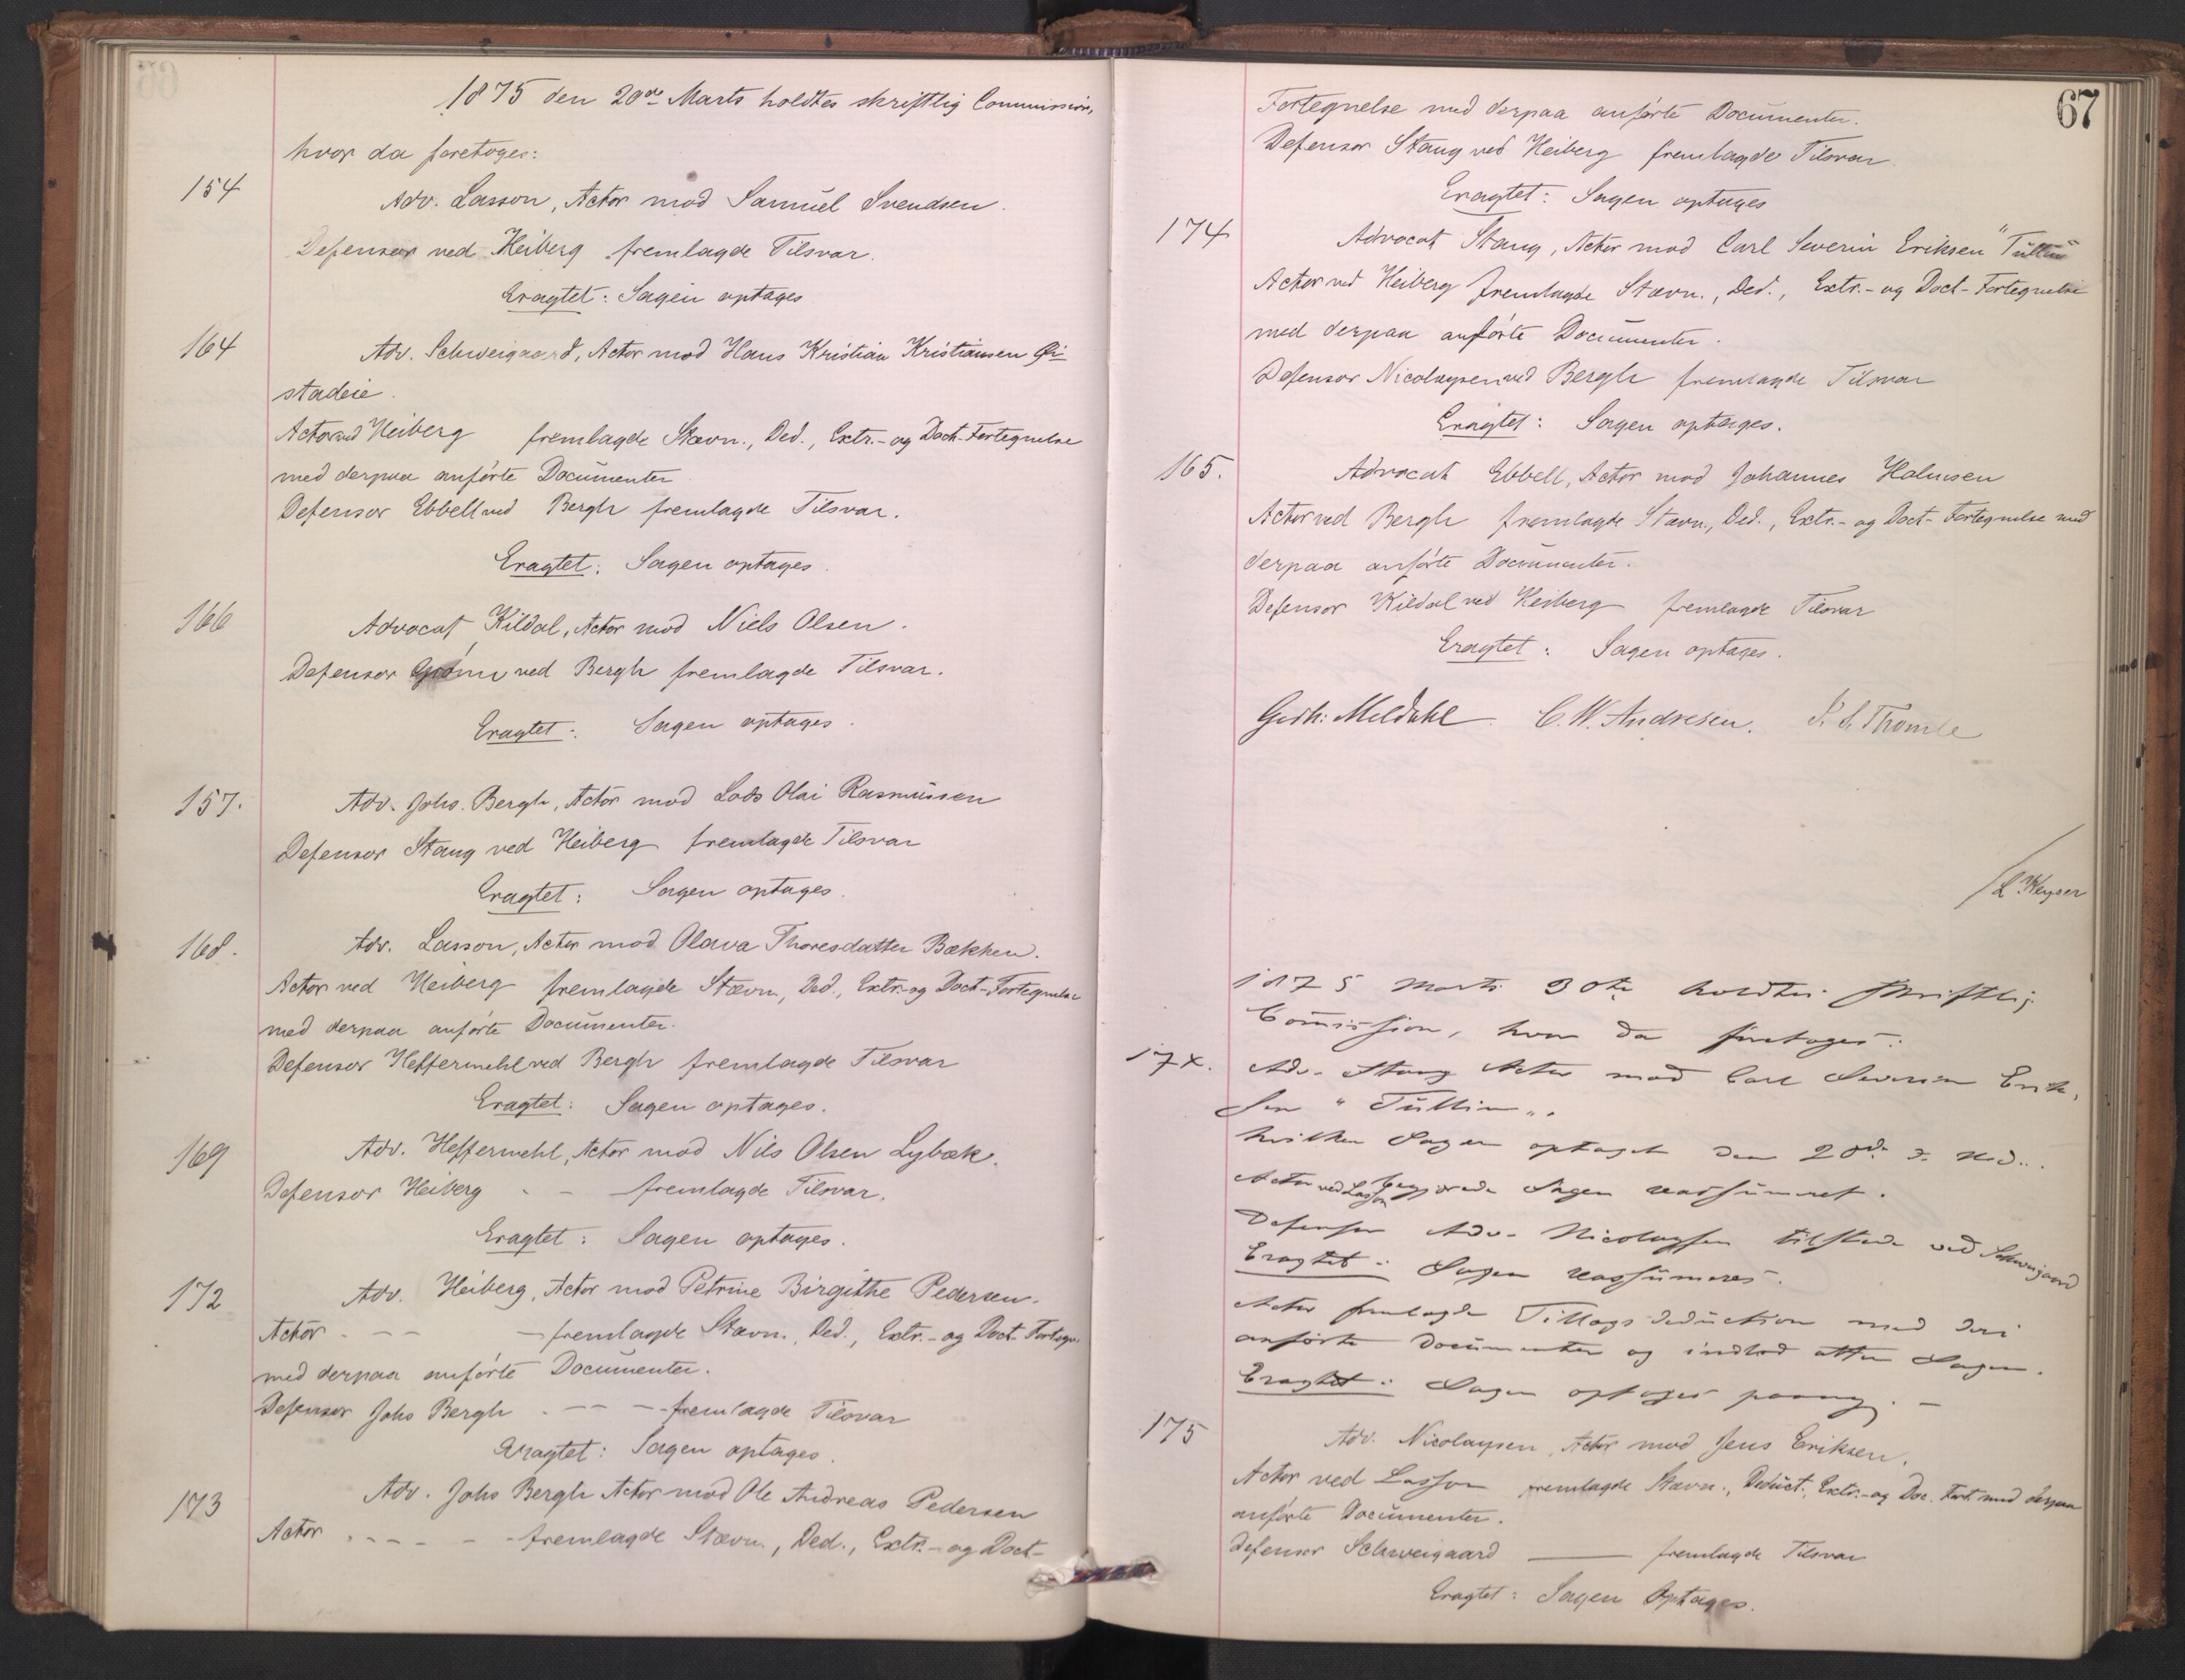 1875 den 20de Marts holdtes skriftlig Commission,
hvor da foretoges:
154
Adv. Lasson, Actor mod Samuel Svendsen.
Defensor ved Heiberg fremlagde Tilsvar.
Eragtet: Sagen optages
164
Adv. Schweigaard, Actor mod Hans Kristian Kristiansen
stadeie.
Actor ved Heiberg fremlagde Stævn., Ded., Extr.- og Doct-Fortegnelse
med derpaa anførte Documenter
Defensor Ebbell ved Bergh fremlagde Tilsvar.
Eragtet: Sagen optages.
166
Advocat Kildal, Actor mod Niels Olsen.
Defensor ved Bergh fremlagde Tilsvar.
Eragtet: Sagen optages.
157.
Adv. Johs. Bergh, Actor mod Lods Olai Rasmussen
Defensor Stang ved Heiberg fremlagde Tilsvar
Eragtet: Sagen optages.
168.
Adv. Lasson, Actor mod Olava Thoresdatter Bækken.
Actor ved Heiberg fremlagde Stævn, Ded., Extr.- og Doct-Fortegnelse
med derpaa anførte Documenter.
Defensor Heffermehl ved Bergh fremlagde Tilsvar
Eragtet: Sagen optages.
169
Adv. Heffermehl, Actor mod Nils Olsen Lybæk.
Defensor Heiberg - - fremlagde Tilsvar.
Eragtet: Sagen optages.
172
Adv. Heiberg, Actor mod Petrine Birgithe Pedersen.
Actor - - - - fremlagde Stævn., Ded., Extr.- og Doct. Fortegn.
med derpaa anførte Documenter.
Defensor Johs Bergh - - - - fremlagde Tilsvar
Eragtet: Sagen optages.
173
Adv. Johs Bergh Actor mod Ole Andreas Pedersen
Actor - - - - - fremlagde Stævn., Ded., Extr.- og Doct-
67
Fortegnelse med derpaa anførte Documenter.
Defensor Stang ved Heiberg fremlagde Tilsvar
Eragtet: Sagen optages
174
Advocat Stang, Actor mod Carl Severin Eriksen "Tullin"
Actor ved Heiberg fremlagde Stævn., Ded., Extr.- og Doct-Fortegnelse
med derpaa anførte Documenter.
Defensor Nicolaysen ved Bergh fremlagde Tilsvar
Eragtet: Sagen optages.
165.
Advocat Ebbell, Actor mod Johannes Halmsen
Actor ved Bergh fremlagde Stævn., Ded., Extr.- og Doct-Fortegnelse med
derpaa anførte Documenter.
Defensor Kildal ved Heiberg fremlagde Tilsvar
Eragtet: Sagen optages.
Gerh: Meldahl. C. W. Andresen. Thomle
/L Keyser
1875 Marts 30te holdtes skriftlig
Commission, hvor da foretoges:
174.
Adv. Stang Actor mod Carl Severin Erik,
sen "Tullin".
hvilken Sag er optaget den 20de d. Md..
Actor ved Lasson begjærede Sagen reassumeret.
Defensor Adv. Nicolaysen tilstede ved Schweigaard
Eragtet: Sagen reassumeres.
Actor fremlagde Tillægsdeduction med deri
anførte Documenter og indlod atter Sagen.
Eragtet: Sagen optages paany. -
175
Adv. Nicolaysen, Actor mod Jens Eriksen.
Actor ved Lasson fremlagde Stævn., Deduct., Extr.- og Doc. Fort. med derpaa
anførte Documenter.
Defensor Schweigaard — fremlagde Tilsvar
Eragtet: Sagen Optages.